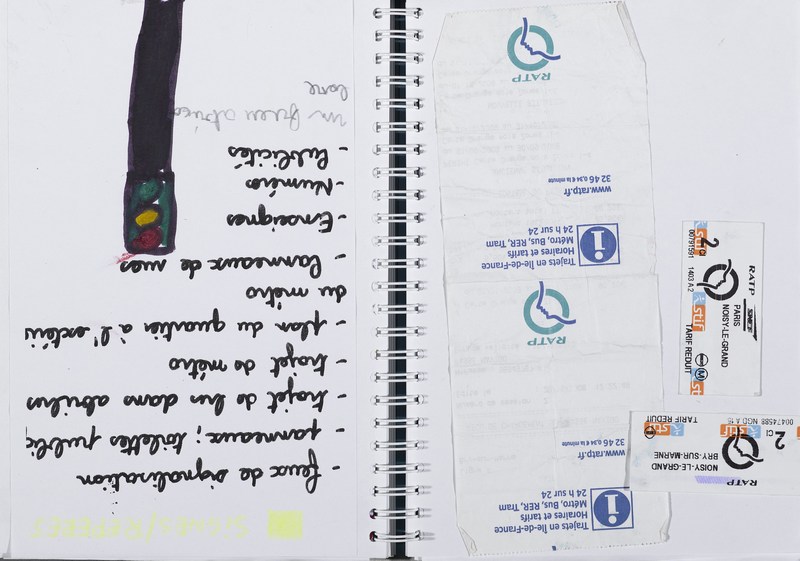 SIGNES/REPERES
- feux de signalisation
- panneaux ; toilettes public
- trajet de bus dans abribus
- trajet de métro
- plan du quartier à l'
du métro
- Panneaux de rues
- Enseignes
- Numéros
- Publicités
un
Trajets en Île-de-France
Horaires et tarifs
Métro, Bus, RER, Tram
24 h sur 24
www.ratp.fr
32 46 0,34 € la minute
RATP
Trajets en Île-de-France
Horaires et tarifs
Métro, Bus, RER, Tram
24 h sur 24
www.ratp.fr
32 46 0,34 € la minute
RATP
RATP
NOISY-LE-GRAND
BRY-SUR-MARNE
2 CI
stif
00474588 NGD A 15
TARIF REDUIT
RATP
SNCF
PARIS
NOISY-LE-GRAND
TARIF REDUIT
2 CI
stif
stif
00791591 1403 A 2